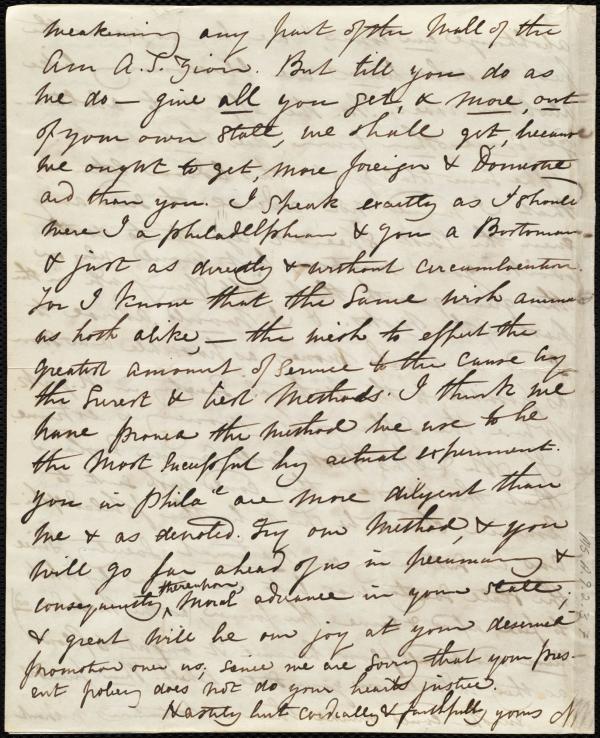 weakening any part of the Wall of the
Am A. S. Zion. But till you do as
we do — give all you get, & more, out
of your own state, we shall get, because
we ought to get, more foreign & Domestic
aid than you. I speak exactly as I should
were I a philadelphian & you a Bostonian
& just as directly & without circumlocution.
For I know that the same wish anima
us both alike, — the wish to effect the
greatest amount of service to the cause by
the surest & best methods. I think we
have proved the method we use to be
the most successful by actual experiment.
You in Phila are more diligent than
we & as devoted. Try our method, & you
will go far ahead of us in pecuniary &
consequently thereupon moral advance in your state.
& great will be our joy at your deserved
promotion over us, since we are sorry that your pres-
ent policy does not do your hearts justice.
Hastily but cordially & faithfully yours